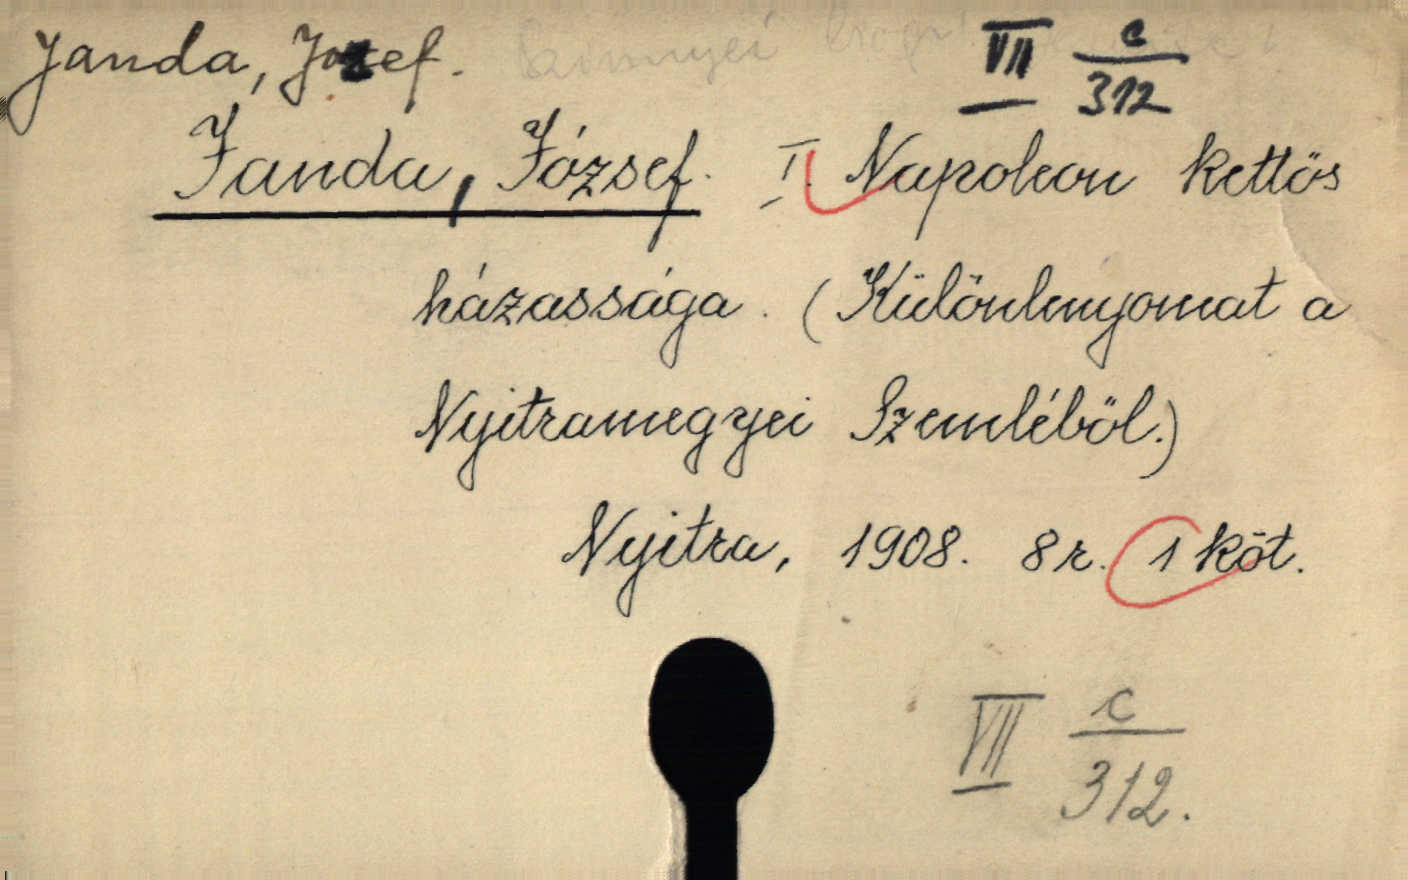 Janda, Jozef. VII c/312
Janda, József. I. Napoleon kettös
házassága. (Különlenyomat a
Nyitramegyei Szemléböl.)
Nyitra, 1908. 8r. 1 köt.
VII c/312.